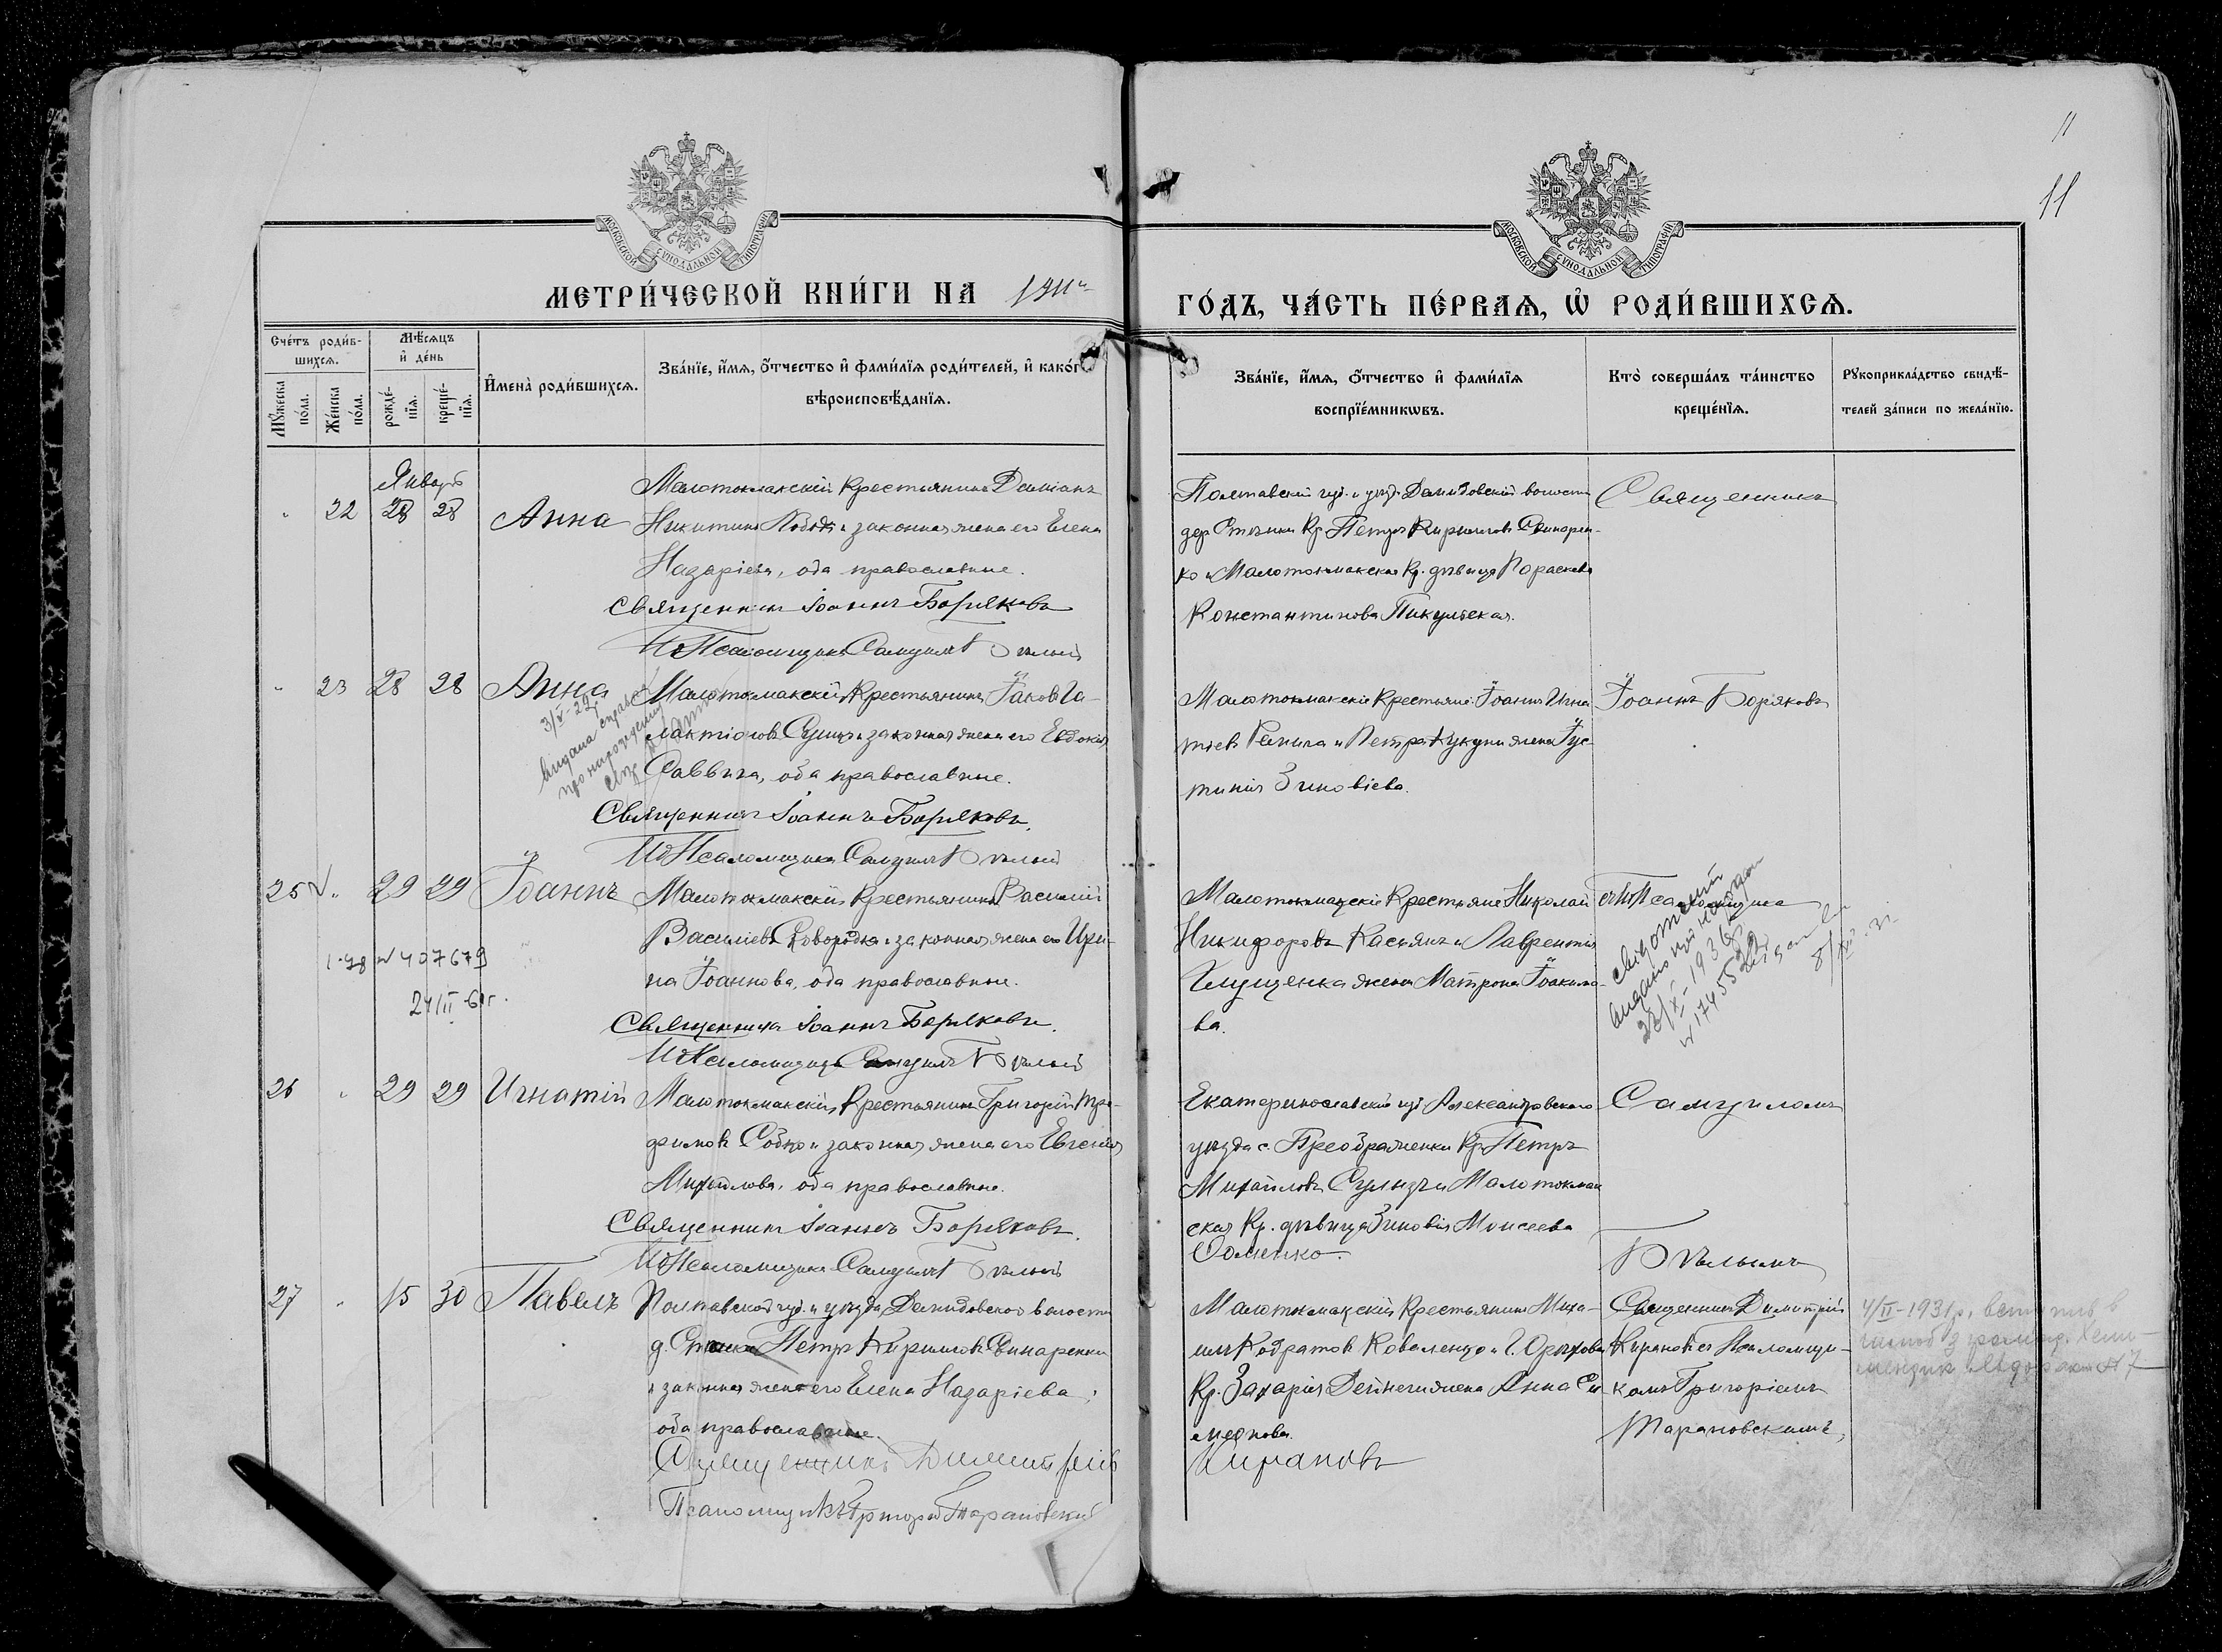 11
11
МОСКОВСКОЙ СУНОДАЛЬНОЙ ТИПОГРАФИИ
МОСКОВСКОЙ СУНОДАЛЬНОЙ ТИПОГРАФИИ
МЕТРИ́ЧЕСКОЙ КНИ́ГИ НА 1911 го
ГО́ДЪ, ЧА́СТЬ ПЕ́РВАѦ, Ѡ҆ РОДИ́ВШИХСѦ.
Сче́тъ роди́в-
шихсѧ.
Мꙋ́жеска по́ла.
Же́нска по́ла.
Мѣ́сѧцъ
и҆ де́нь
рожде́-
нїѧ.
креще́-
нїѧ.
И҆мена̀ роди́вшихсѧ.
Зва́нїе, и҆́мѧ, ѻ҆́тчество и҆ фами́лїѧ роди́телей, и҆ како́гѡ
вѣроисповѣ́данїѧ.
Зва́нїе, и҆́мѧ, ѻ҆́тчество и҆ фами́лїѧ
воспрїе́мникѡвъ.
Кто̀ соверша́лъ та́инство
креще́нїѧ.
Рꙋкоприкла́дство свидѣ́-
телей за́писи по жела́нїю.
Январь
" 22 28 28 Анна
Малотокмакскій крестьянинъ Даміанъ
Никитинъ и законная жена его Елена
Назаріева, оба православные.
Священникъ Іоаннъ Боряковъ
И д Псаломщика Самуилъ Бѣлый
Полтавской губ. и уѣзд. Демидовской волости
дер. Стѣнки Кр. Петръ Кирилловъ Свинарен-
ко и Малотокмакская Кр. дѣвица Параскева
Константинова Пикульская.
Священникъ
" 23 28 28 Анна
Малотокмакскій Крестьянинъ Іаковъ Га-
лактіоновъ и законная жена его Евдокія
Саввина, оба православные.
Священникъ Іоаннъ Боряковъ.
И д Псаломщика Самуилъ Бѣлый
3/V-29
видана
про народження
Малотокмакскіе Крестьяне: Іоаннъ Игна-
тіевъ и Петра жена Іус-
тинія Зиновіева.
Іоаннъ Боряковъ
25 V " 29 29 Іоаннъ
Малотокмакскій Крестьянинъ Василій
Васильевъ Сковородка и законная жена его Ири-
на Іоаннова, оба православные.
Священникъ Іоаннъ Боряковъ.
И д Псаломщика Самуилъ Бѣлый
N 407679
24/II-61г.
Малотокмакскіе Крестьяне Николай
Никифоровъ Касьянъ и Лаврентія
Глущенка жена Матрона Іоакимо-
ва.
съ И д Псаломщика
видано
23/X-1936
N 174552
26 " 29 29 Игнатій
Малотокмакскій Крестьянинъ Григорій Тро-
фимовъ и законная жена его Евгенія
Михайлова, оба православные.
Священникъ Іоаннъ Боряковъ.
И д Псаломщика Самуилъ Бѣлый
Екатеринославской губ. Александровскаго
уѣзда с. Преображенки Кр. Петръ
Михайловъ и Малотокмак-
ская Кр. дѣвица Зиновія Моисеева
Самуиломъ
Бѣлымъ
27 " 15 30 Павелъ
Полтавской губ. и уѣзда Демидовской волости
д. Стѣнки Петръ Кирилловъ Свинаренко
и законная жена его Елена Назаріева,
оба православные.
Священникъ Димитрій
Псаломщикъ Григорій Тарановскій
Малотокмакскій Крестьянинъ Миха-
илъ Кодратовъ Коваленко и Г. Орѣхова
Кр. Захарія жена Анна Си-
меонова.
Кирановъ
Священникъ Димитрій
Кирановъ съ Псаломщи-
комъ Григоріемъ
Тарановскимъ.
4/II-1931р. вступив в
шлюб з
N 7